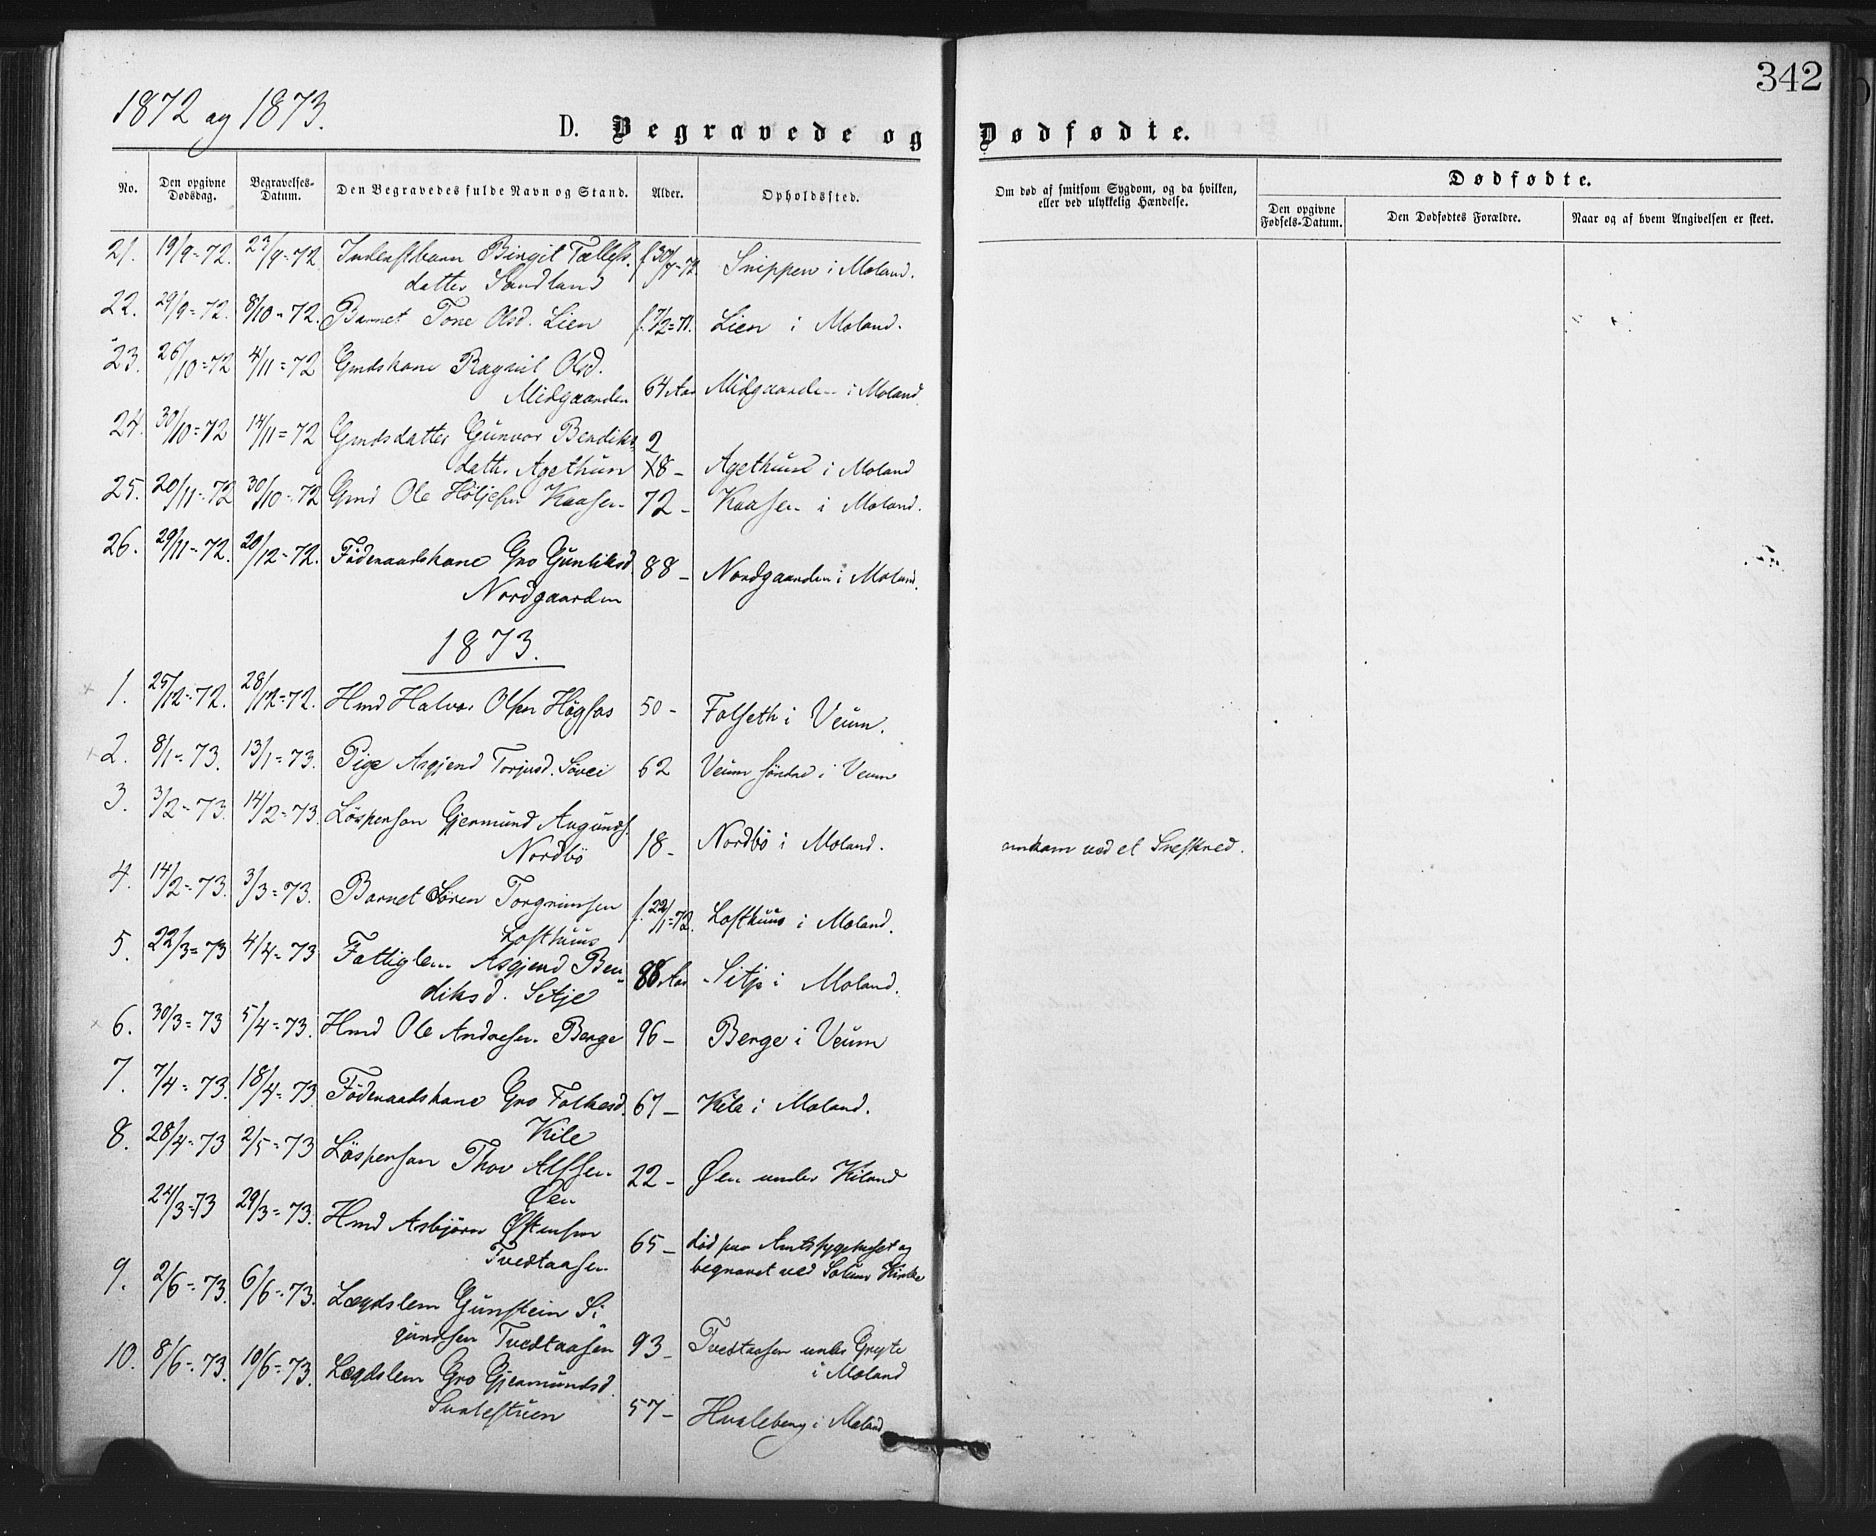 342
1872 og 1873.
D. Begravede og Dødfødte.
No. Den opgivne Dødsdag. Begravelses-Datum. Den Begravedes fulde Navn og Stand. Alder. Opholdssted. Om død af smitsom Sygdom, og da hvilken, eller ved ulykkelig Hændelse. Dødfødte.
Den opgivne Fødsels-Datum. Den Dødfødtes Forældre. Naar og af hvem Angivelsen er skeet.
21. 19/9-72. 23/9-72 Birgit Tallefs-
datter Sandland f. 30/7-72. Snippen i Moland.
22. 29/9-72. 8/10-72. Barnet Tone Olsd. Lien f. 7/2=71. Lien i Moland.
23. 26/10=72 4/11=72 Gmdskone Ragnil Olsd.
Midgaarden 64 Aar Midgaarden i Moland.
24. 30/10=72 14/11=72 Gmdsdatter Gunvor Bendiks-
datter Agethun 28 - Agethun i Moland
25. 20/11-72 30/10-72 Gmd Ole Höljesen Kaasen 72 - Kaasen i Moland.
26. 29/11-72. 20/12-72. Föderaadskone Gro Gunliksd
Nordgaarden 88 - Nordgaarden i Moland.
1873.
1. 25/12-72. 28/12=72. Hmd Halvor Olsen Högfos 50 - Folseth i Veum.
2. 8/1-73. 13/1=73. Pige Asgjerd Torjusd. Sövei 62 Veum söndre i Veum
3. 3/2-73. 14/2-73. Löspersson Gjermund Augunds.
Nordbö 18 - Nordbö i Moland. omkom ved et Sneskred.
4. 14/2-73. 3/3=73. Barnet Sören Torgrimsen
Lofthuus f. 22/1=72. Lofthuus i Moland.
5. 22/3=73 4/4-73. Fattiglem Asgjerd Ben-
diksd. Sitje 88 Aar Sitje i Moland.
6. 30/3=73 5/4-73. Hmd Ole Andresen Berge 96 - Berge i Veum
7. 7/4-73. 18/4-73. Föderaadskone Gro Folkesd.
Kile 67 - Kile i Moland.
8. 28/4-73 2/5-73 Löspersson Thov Alfsen
Øen 22 - Øen under Kiland
24/3=73 29/3=73. Hmd Asbjörn Østensen
Tvedtaasen 65 - död paa Amtssygehuset og
begravet ved Solum Kirke
9. 2/6-73. 6/6-73. Lægdslem Gunstein Si-
gundsen Tvedtaasen 93 - Tvedtaasen under Grejte
i Moland
10. 8/6-73. 10/6-73. Lægdslem Gro Gjermundsd.
Svalestuen 57 - Hvaleberg i Moland